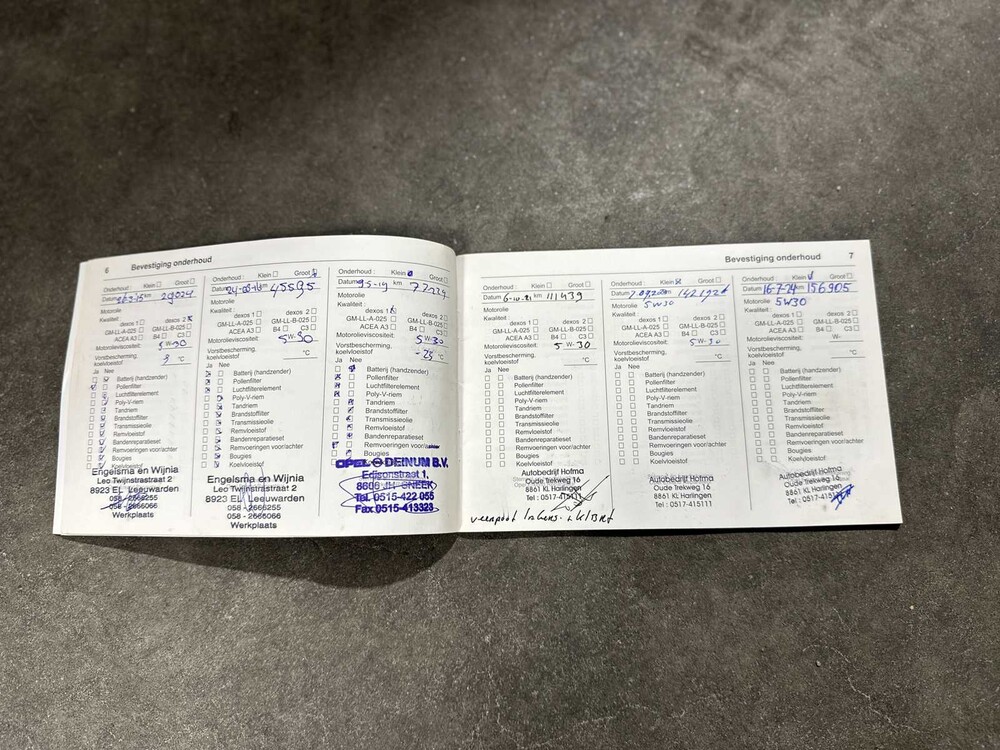 6 Bevestiging onderhoud
Onderhoud : Klein Groot
Datum km 29024
Motorolie
Kwaliteit :
dexos 1 dexos 2
GM-LL-A-025 GM-LL-B-025
ACEA A3 B4 C3
Motorolieviscositeit: 5 W-30
Vorstbescherming,
koelvloeistof °C
Ja Nee
Batterij (handzender)
Pollenfilter
Luchtfilterelement
Poly-V-riem
Tandriem
Brandstoffilter
Transmissieolie
Remvloeistof
Bandenreparatieset
Remvoeringen voor/achter
Bougies
Koelvloeistof
Engelsma en Wijnia
Leo Twijnstrastraat 2
8923 EL Leeuwarden
058 - 2666255
058 - 2666066
Werkplaats
Onderhoud : Klein Groot
Datum km 45595
Motorolie
Kwaliteit :
dexos 1 dexos 2
GM-LL-A-025 GM-LL-B-025
ACEA A3 B4 C3
Motorolieviscositeit: 5 W-30
Vorstbescherming,
koelvloeistof °C
Ja Nee
Batterij (handzender)
Pollenfilter
Luchtfilterelement
Poly-V-riem
Tandriem
Brandstoffilter
Transmissieolie
Remvloeistof
Bandenreparatieset
Remvoeringen voor/achter
Bougies
Koelvloeistof
Engelsma en Wijnia
Leo Twijnstrastraat 2
8923 EL Leeuwarden
058 - 2666255
058 - 2666066
Werkplaats
Onderhoud : Klein Groot
Datum km
Motorolie
Kwaliteit :
dexos 1 dexos 2
GM-LL-A-025 GM-LL-B-025
ACEA A3 B4 C3
Motorolieviscositeit: 5 W-30
Vorstbescherming,
koelvloeistof -25 °C
Ja Nee
Batterij (handzender)
Pollenfilter
Luchtfilterelement
Poly-V-riem
Tandriem
Brandstoffilter
Transmissieolie
Remvloeistof
Bandenreparatieset
Remvoeringen voor/achter
Bougies
OPEL DEINUM B.V.
Edisonstraat 1,
8606 JH SNEEK
Tel. 0515-422 055
Fax 0515-413323
Bevestiging onderhoud 7
Onderhoud : Klein Groot
Datum 6-10-21 km 111439
Motorolie
Kwaliteit :
dexos 1 dexos 2
GM-LL-A-025 GM-LL-B-025
ACEA A3 B4 C3
Motorolieviscositeit: 5 W-30
Vorstbescherming,
koelvloeistof °C
Ja Nee
Batterij (handzender)
Pollenfilter
Luchtfilterelement
Poly-V-riem
Tandriem
Brandstoffilter
Transmissieolie
Remvloeistof
Bandenreparatieset
Remvoeringen voor/achter
Bougies
Koelvloeistof
Autobedrijf Hofma
Oude Trekweg 16
8861 KL Harlingen
Tel : 0517-415111
Onderhoud : Klein Groot
Datum km
Motorolie 5W30
Kwaliteit :
dexos 1 dexos 2
GM-LL-A-025 GM-LL-B-025
ACEA A3 B4 C3
Motorolieviscositeit: 5 W-30
Vorstbescherming,
koelvloeistof °C
Ja Nee
Batterij (handzender)
Pollenfilter
Luchtfilterelement
Poly-V-riem
Tandriem
Brandstoffilter
Transmissieolie
Remvloeistof
Bandenreparatieset
Remvoeringen voor/achter
Bougies
Koelvloeistof
Autobedrijf Hofma
Oude Trekweg 16
8861 KL Harlingen
Tel : 0517-415111
Onderhoud : Klein Groot
Datum 16-7-24 km 156905
Motorolie 5W30
Kwaliteit :
dexos 1 dexos 2
GM-LL-A-025 GM-LL-B-025
ACEA A3 B4 C3
Motorolieviscositeit: W-
Vorstbescherming,
koelvloeistof °C
Ja Nee
Batterij (handzender)
Pollenfilter
Luchtfilterelement
Poly-V-riem
Tandriem
Brandstoffilter
Transmissieolie
Remvloeistof
Bandenreparatieset
Remvoeringen voor/achter
Bougies
Koelvloeistof
Autobedrijf Hofma
Oude Trekweg 16
8861 KL Harlingen